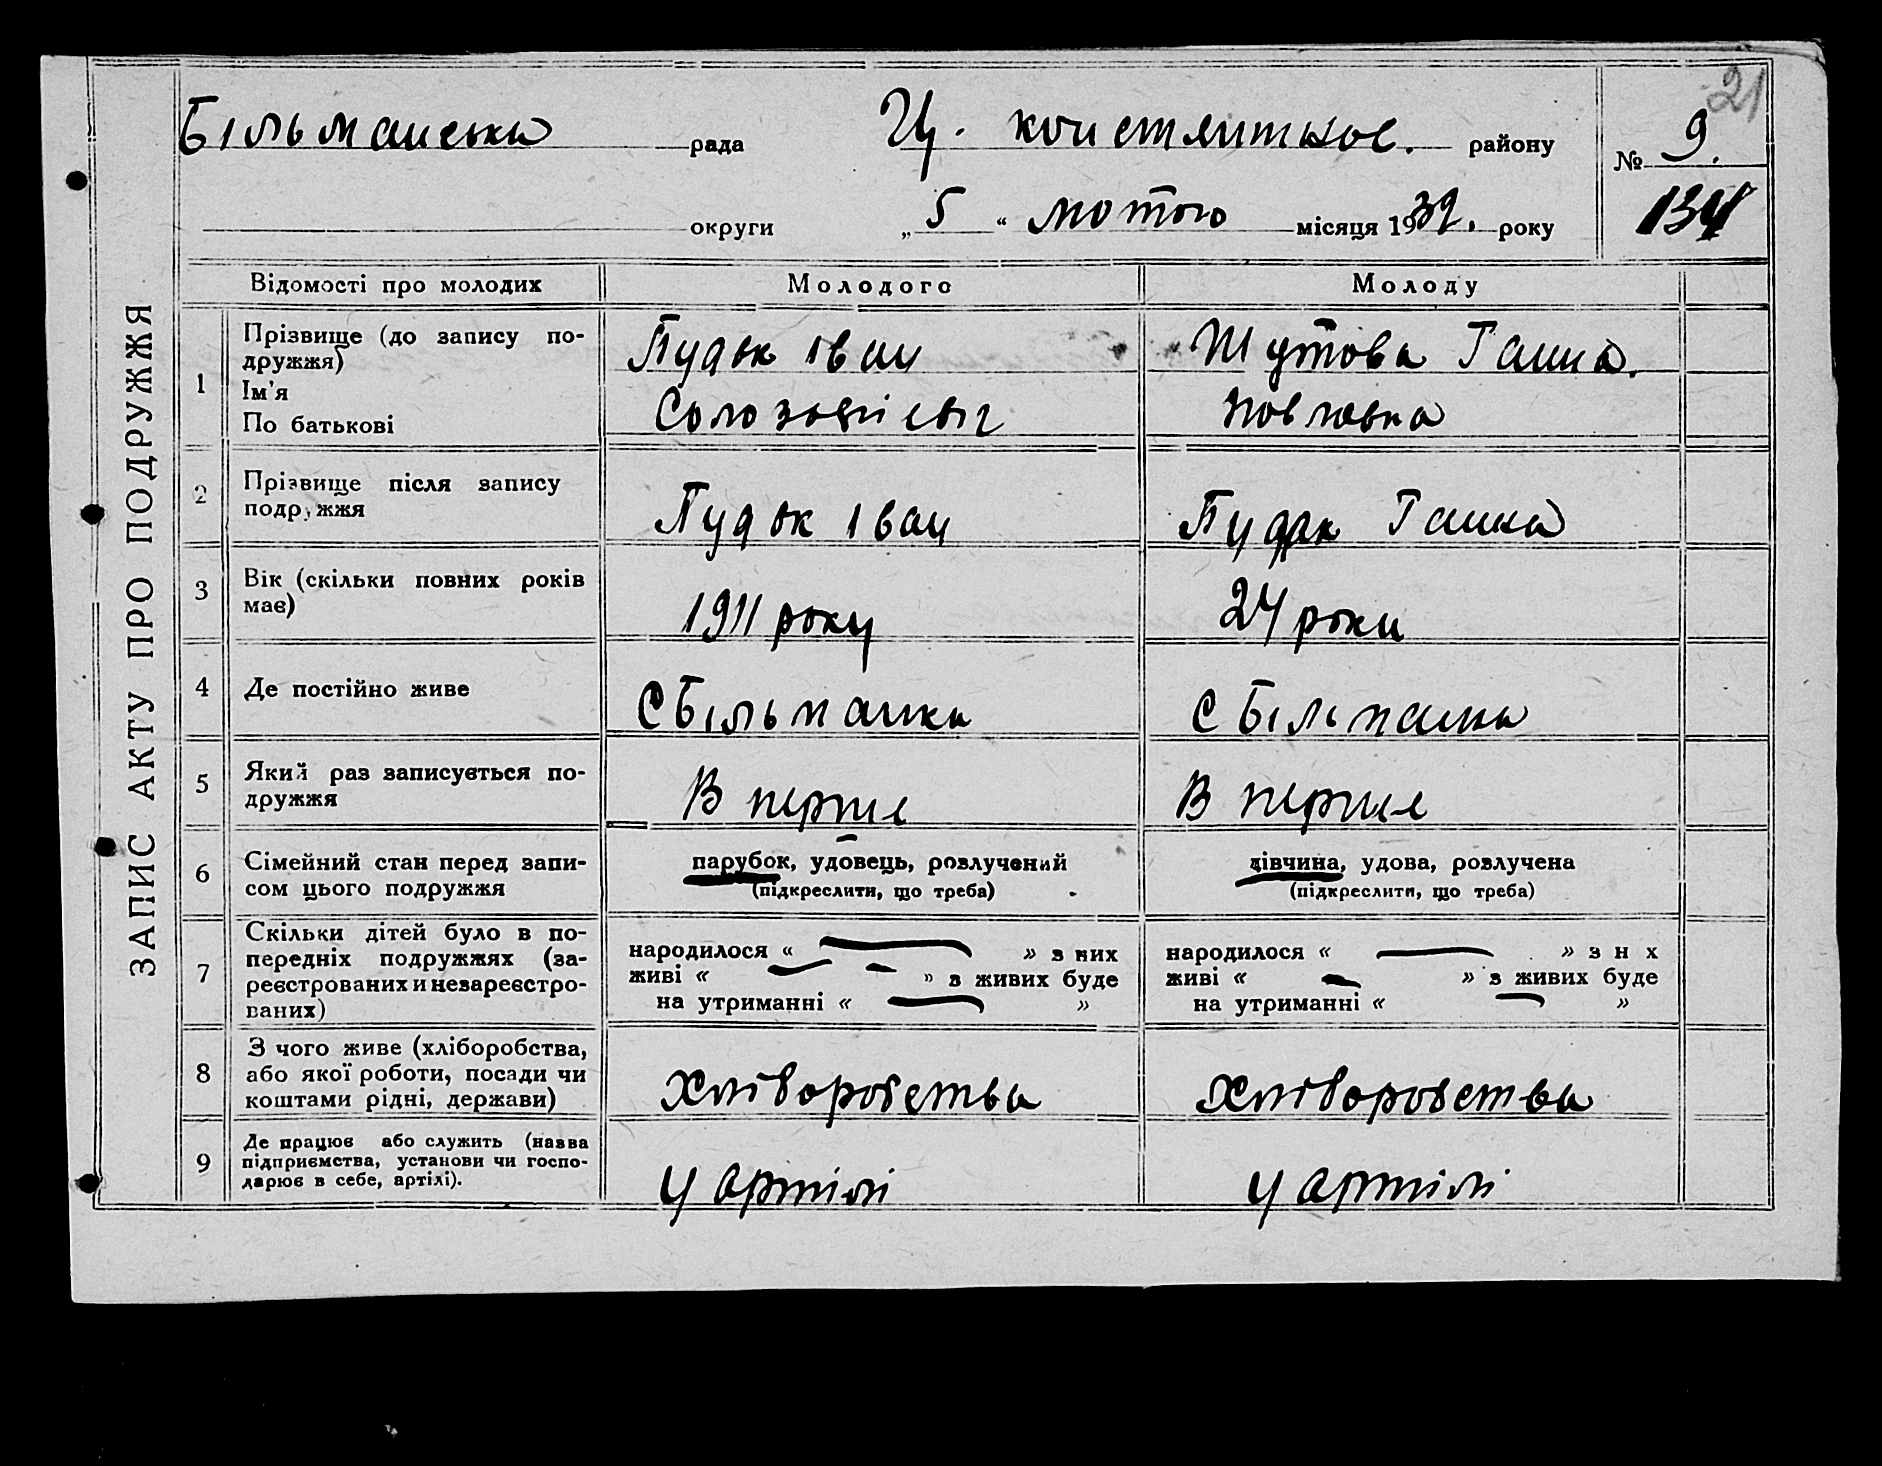 21
Більманська рада Ц. констянтинос. району № 9.
округи „5“ лютого місяця 1932. року 134
ЗАПИС АКТУ ПРО ПОДРУЖЖЯ
Відомості про молодих Молодого Молоду
1 Прізвище (до запису подружжя) Пудак Іван Шутова Ганна.
Ім'я
По батькові Павловна
2 Прізвище після запису подружжя Пудак Іван Пудак Ганна
3 Вік (скільки повних років має) 1911 року 24 роки
4 Де постійно живе С Більманка С Більманка
5 Який раз записується подружжя В перше В перше
6 Сімейний стан перед записом цього подружжя парубок, удовець, розлучений дівчина, удова, розлучена
(підкреслити, що треба) (підкреслити, що треба)
7 Скільки дітей було в попередніх подружжях (зареєстрованих и незареєстрованих)
народилося « » з них народилося « » з н х
живі « » з живих буде живі « » з живих буде
на утриманні « » на утриманні « »
8 З чого живе (хліборобства, або якої роботи, посади чи коштами рідні, держави) Хліборобства Хліборобства
9 Де працює або служить (назва підприємства, установи чи господарює в себе, артілі). У артілі У артілі